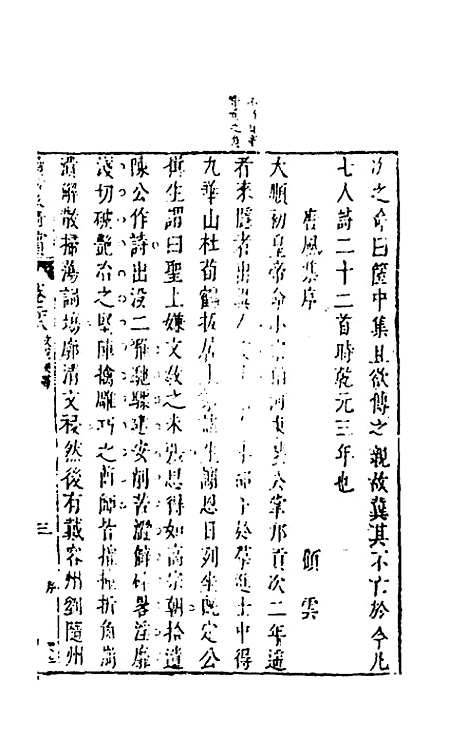 次之命曰篋中集且欲傳之親故冀其不亡於今凡
七人詩二十二首時乾元三年也
唐風集序
顧雲
大順初皇帝命小宗伯河東裴公掌邦貢次二年遥
者來隱者出異
於羣進士中得
九華山杜荀鶴拔居上
諸生謝恩日列坐既定公
揖生謂曰聖上嫌文教之未張思得如高宗朝拾遺
陳公作詩出没二雅馳驟建安削苦澀僻碎畧淫靡
淺切破艷冶之堅陣擒雕巧之酋師皆摧撞折角崩
潰解散掃蕩詞塲廓清文祲然後有戴容州劉隨州
三
序